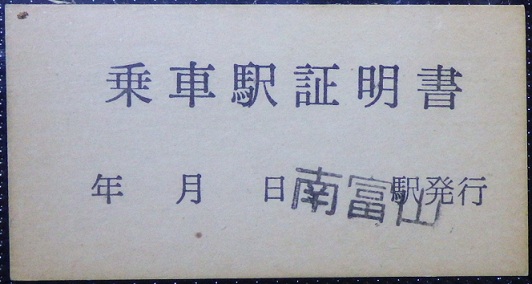 乗車駅証明書
年 月 日 南富山 駅発行